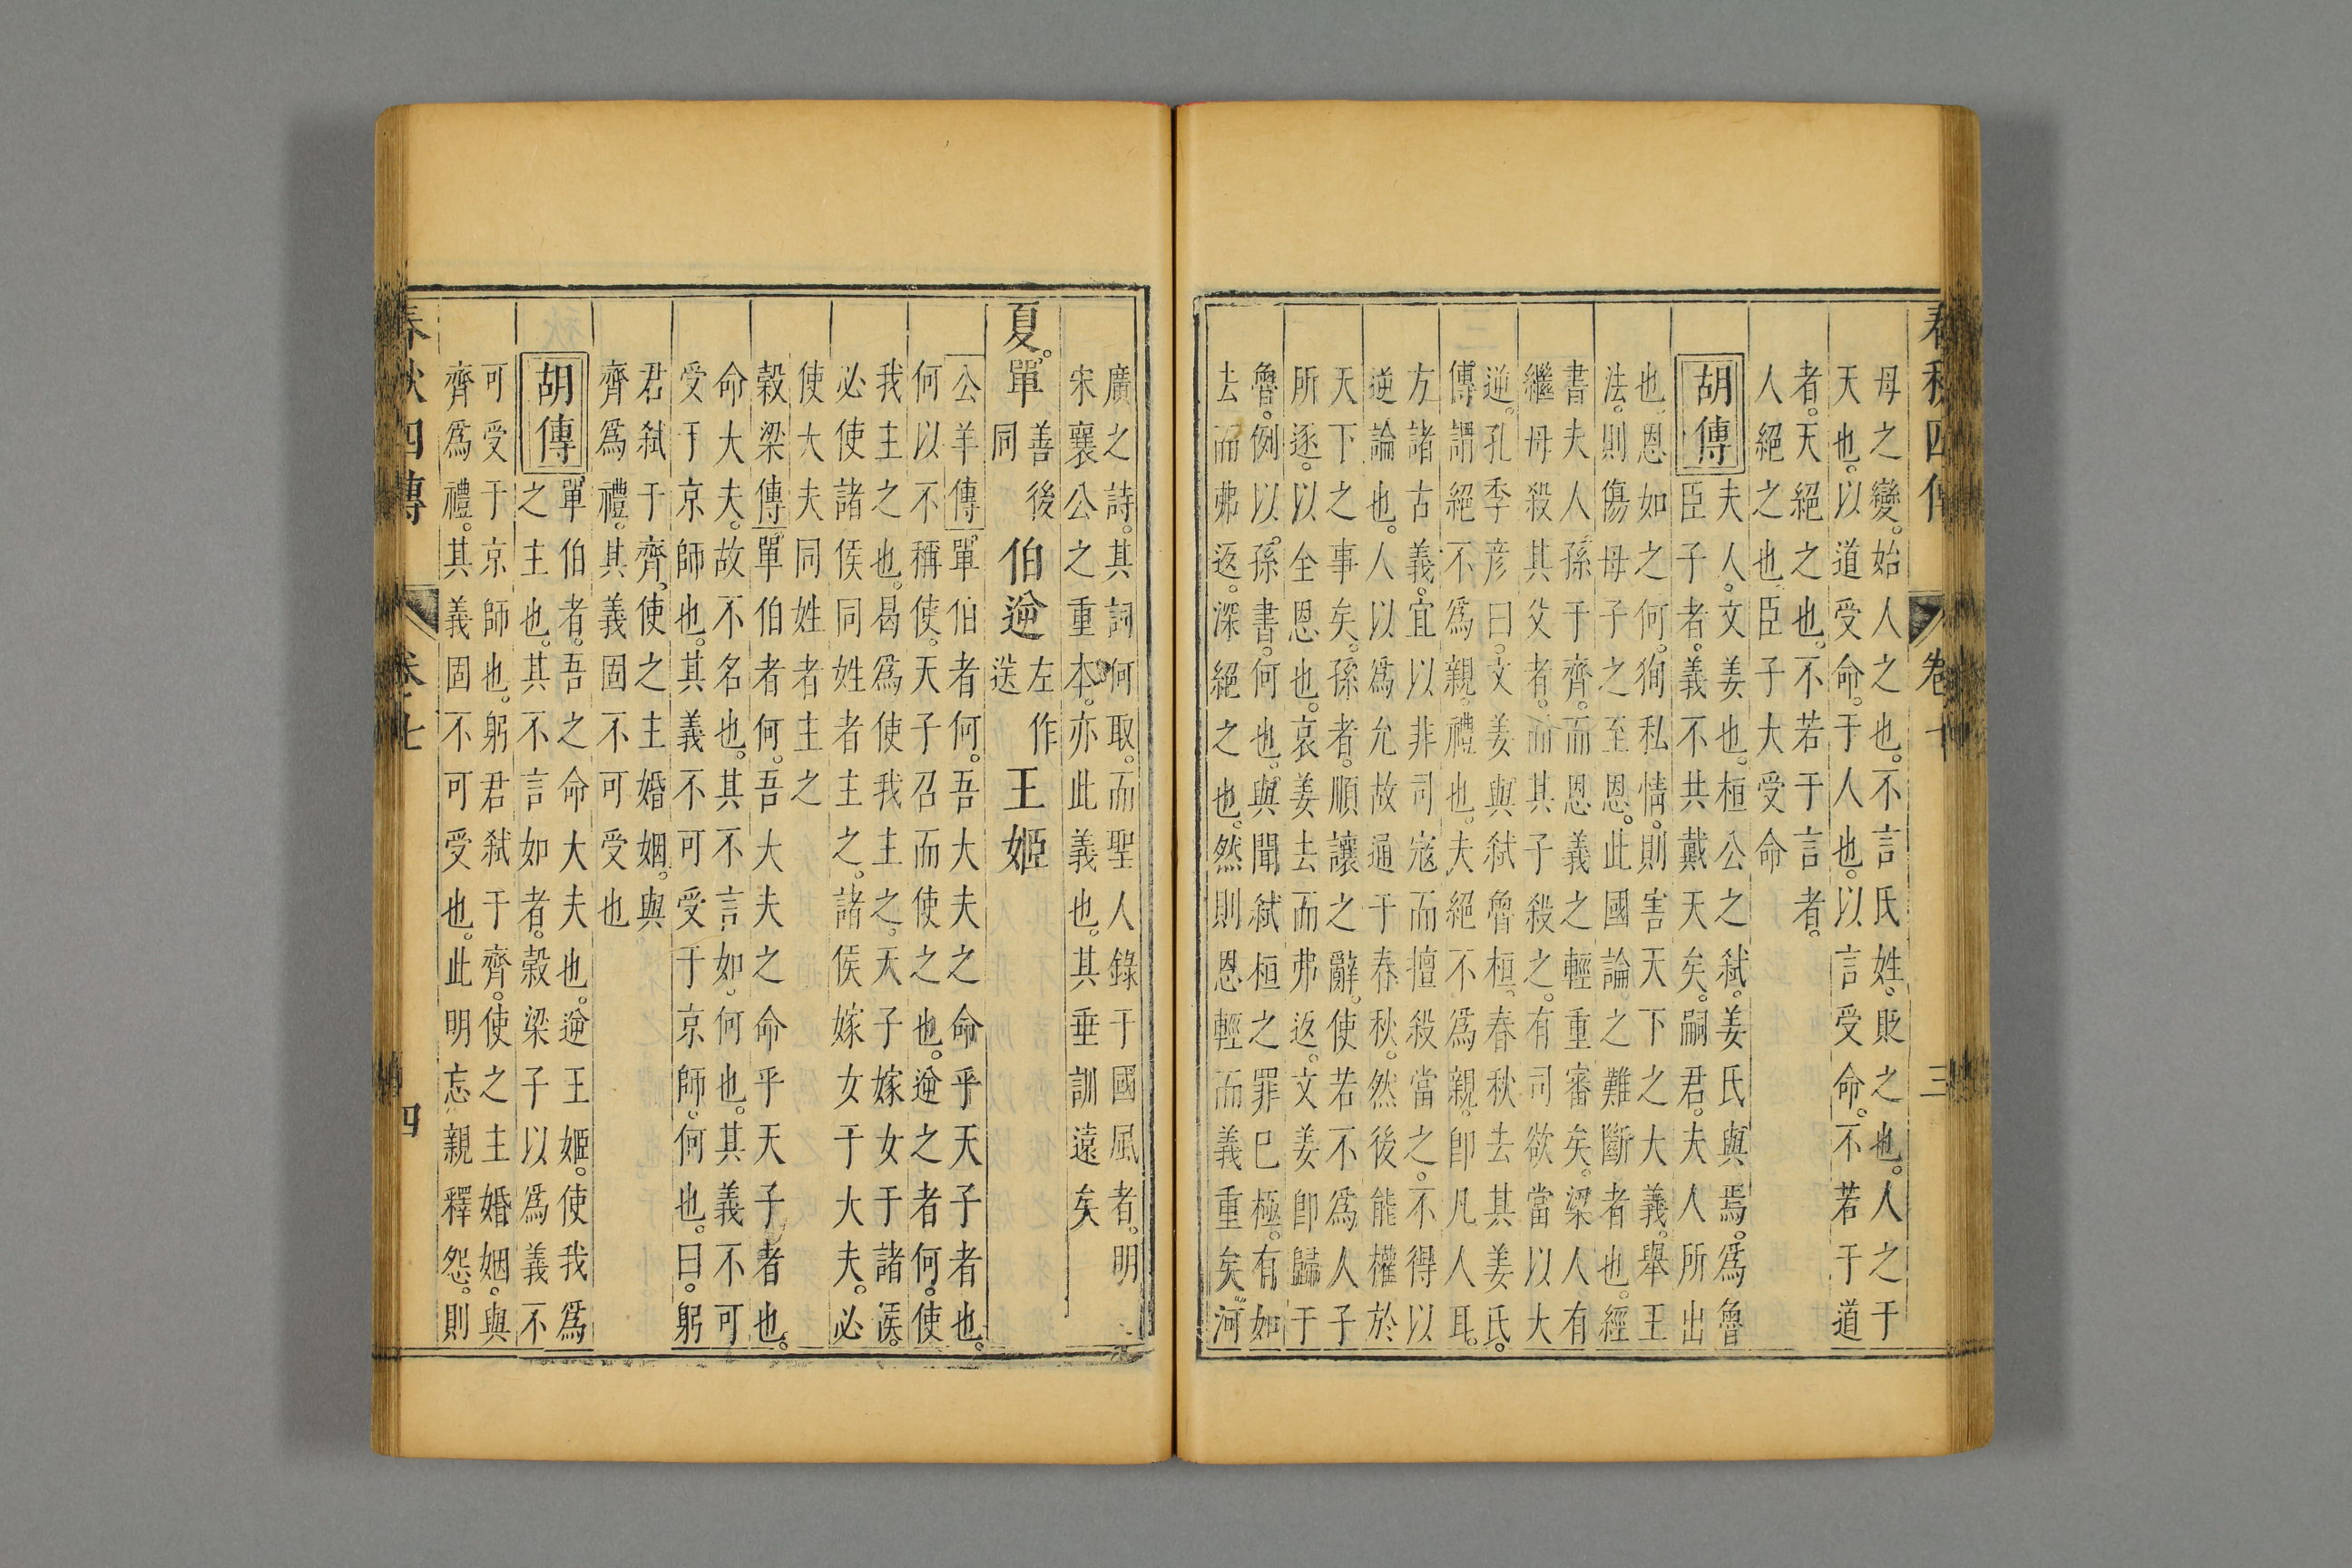 春秋四傳 卷十 三
母之變。始人之也。不言氏姓。貶之也。人之于
天也。以道受命。于人也。以言受命。不若于道
者。天絕之也。不若于言者。
人絕之也。臣子大受命
胡傳 夫人。文姜也。桓公之弒。姜氏與焉。爲魯
臣子者。義不共戴天矣。嗣君。夫人所出
也。恩如之何。徇私情。則害天下之大義。舉王
法。則傷母子之至恩。此國論之難斷者也。經
書夫人孫于齊。而恩義之輕重審矣。梁人有
繼母殺其父者。而其子殺之。有司欲當以大
逆。孔季彦曰。文姜與弒魯桓。春秋去其姜氏。
傳謂絕不爲親。禮也。夫絕不爲親。即凡人耳。
方諸古義。宜以非司寇而擅殺當之。不得以
逆論也。人以爲允故通于春秋。然後能權於
天下之事矣。孫者。順讓之辭。使若不爲人子
所逐。以全恩也。哀姜去而弗返。文姜即歸于
魯。例以孫書。何也。與聞弒桓之罪已極。有如
去而弗返。深絕之也。然則恩輕而義重矣。河
廣之詩。其詞何取。而聖人錄于國風者。明
宋襄公之重本。亦此義也。其垂訓遠矣
夏。單善後同伯逆左作送王姬
公羊傳。單伯者何。吾大夫之命乎天子者也。
何以不稱使。天子召而使之也。逆之者何。使
我主之也。曷爲使我主之。天子嫁女于諸侯。
必使諸侯同姓者主之。諸侯嫁女于大夫。必
使大夫同姓者主之
榖梁傳。單伯者何。吾大夫之命乎天子者也。
命大夫。故不名也。其不言如。何也。其義不可
受于京師也。其義不可受于京師。何也。曰。躬
君弒于齊。使之主婚姻。與
齊爲禮。其義固不可受也
胡傳 單伯者。吾之命大夫也。逆王姬。使我爲
之主也。其不言如者。榖梁子以爲義不
可受于京師也。躬君弒于齊。使之主婚姻。與
齊爲禮。其義固不可受也。此明忘親釋怨。則
春秋四傳 卷十 四